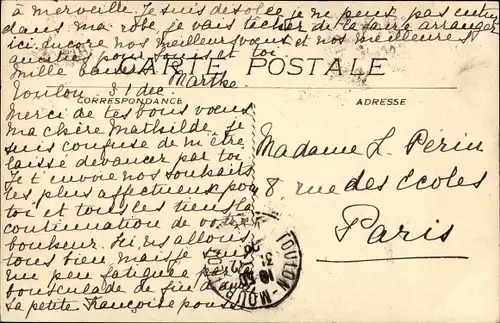 à merveille. Je suis désolée je ne peux pas entrer
dans ma robe je vais tâcher de la faire arranger
ici. Encore nos meilleurs vœux et nos meilleures
pour vous et toi
Mille baisers Marthe
CARTE POSTALE
Toulon 31 dec
CORRESPONDANCE
ADRESSE
Merci de tes bons vœux
ma chère Mathilde, je
suis confuse de m'être
laissé devancer par toi
Je t'envoie nos souhaits
les plus affectueux pour
toi et tous les tiens la
continuation de votre
bonheur. Ici, nous allons
tous bien mais je suis
un peu fatiguée par la
bousculade de fin d'année
la petite Françoise pousse
Madame L. Périn
8, rue des Ecoles
Paris
TOULON-MOURILLON
31 12